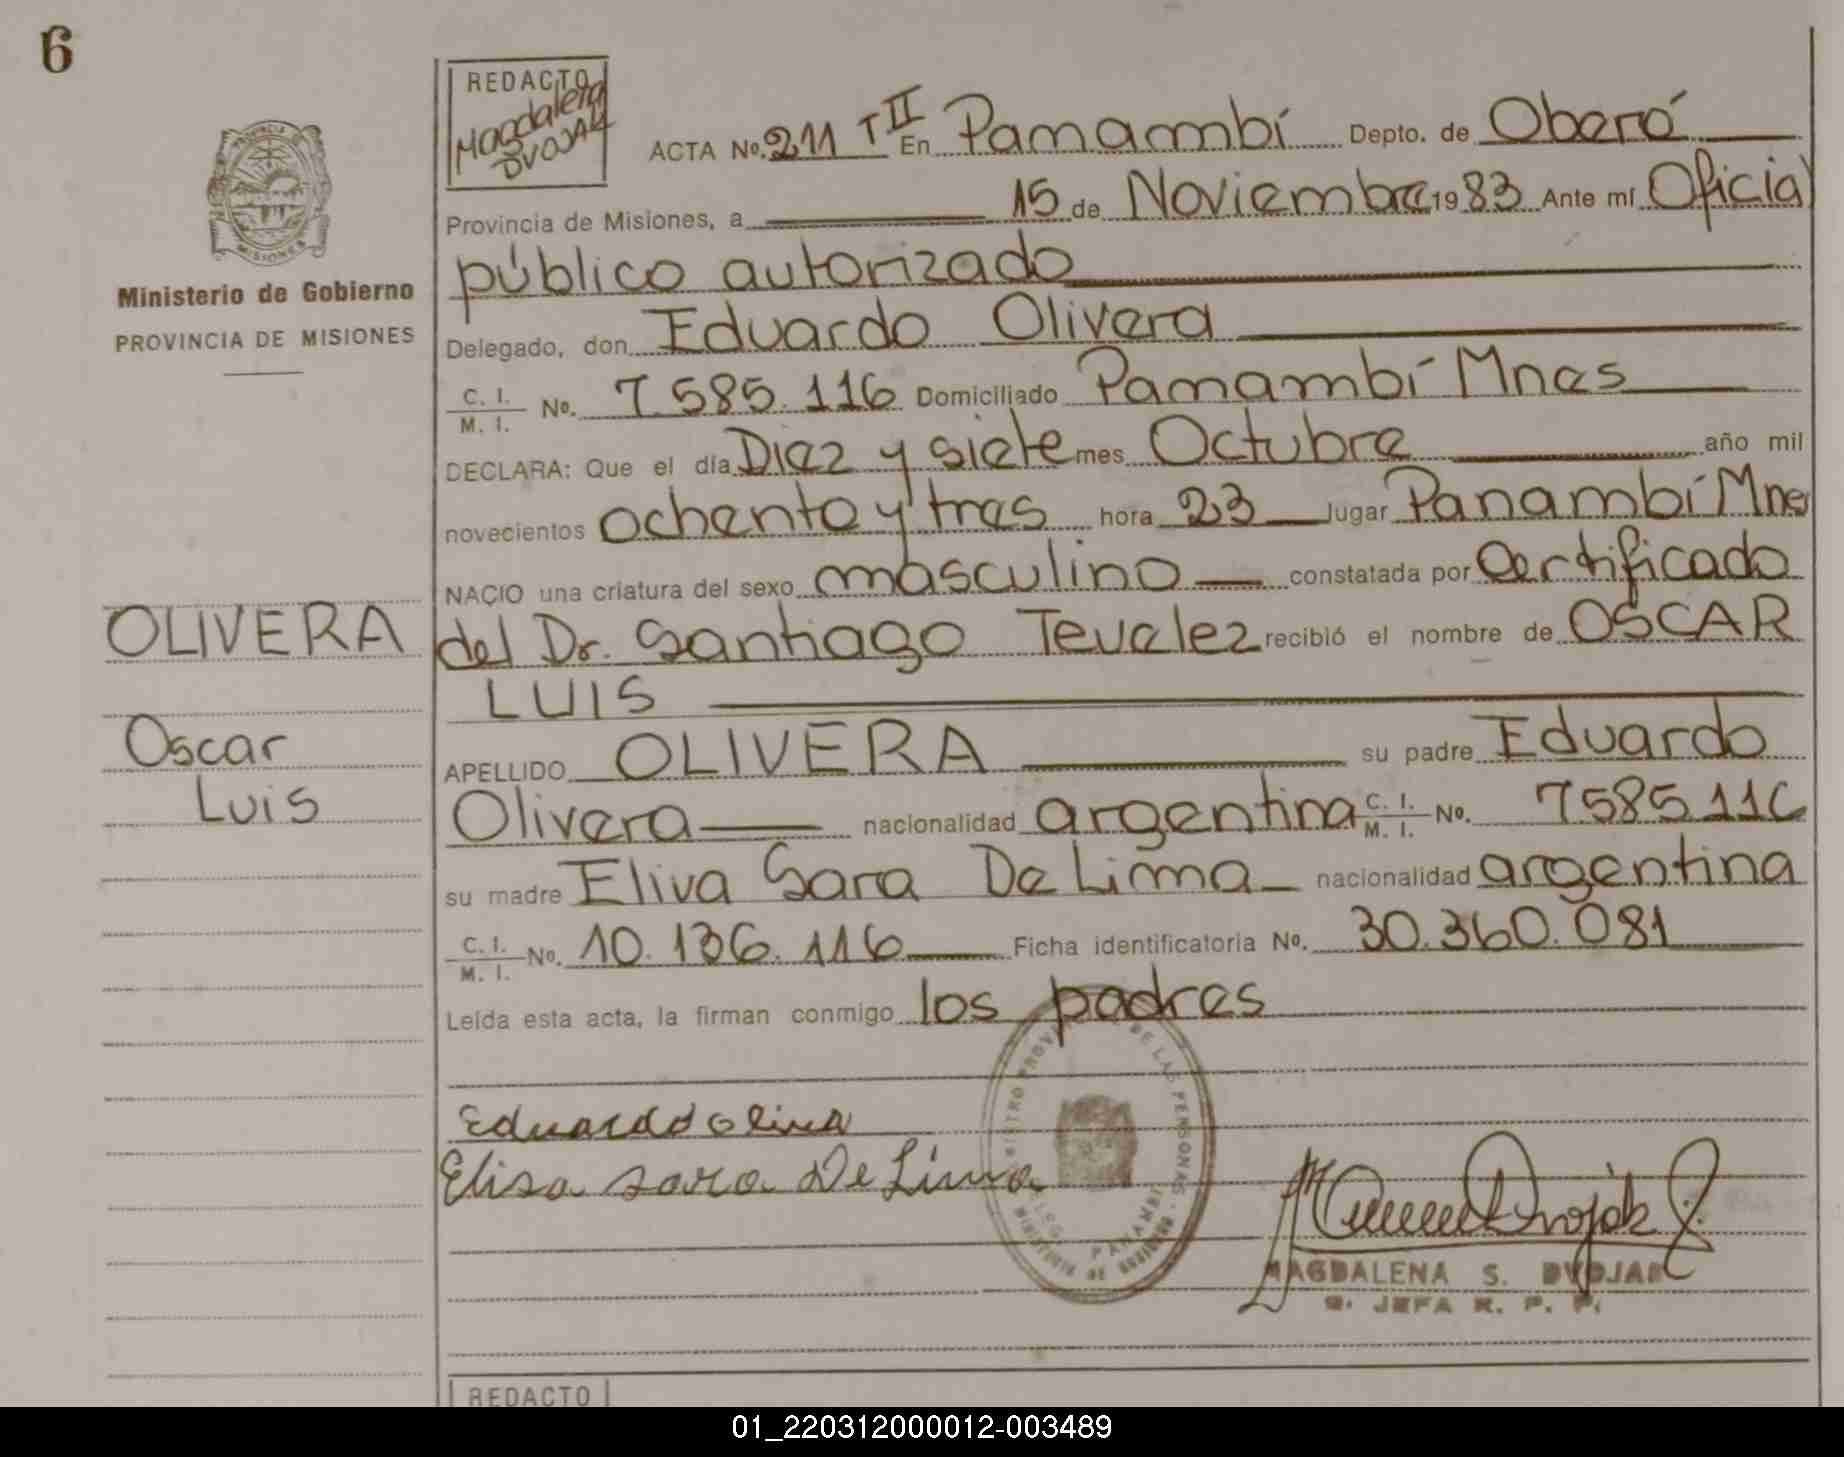 6
REDACTO
Magdalena
DVOJAK
ACTA No. 211 T II En Panambí Depto. de Oberá
Provincia de Misiones, a 15 de Noviembre 1983 Ante mí Oficial
público autorizado
Delegado, don Eduardo Olivera
C. I.
M. I. No. 7.585.116 Domiciliado Panambí Mnes
DECLARA: Que el día Diez y siete mes Octubre año mil
novecientos ochenta y tres hora 23 lugar Panambí Mnes
NACIO una criatura del sexo masculino constatada por Certificado
del Dr. Santiago Tevelez recibió el nombre de OSCAR
LUIS
APELLIDO OLIVERA su padre Eduardo
Olivera nacionalidad argentina C. I. M. I. No. 7585116
su madre Eliva Sara De Lima nacionalidad argentina
C. I.
M. I. No. 10.136.116 Ficha identificatoria No. 30.360.081
Leída esta acta, la firman conmigo los padres
Eduardo Olivera
Elisa Sara De Lima
MAGDALENA S. DVOJAK
JEFA R. P. P.
PROVINCIA
MISIONES
Ministerio de Gobierno
PROVINCIA DE MISIONES
OLIVERA
Oscar
Luis
DE LAS PERSONAS
PANAMBI
MINISTERIO DE GOBIERNO
REDACTO
01_220312000012-003489